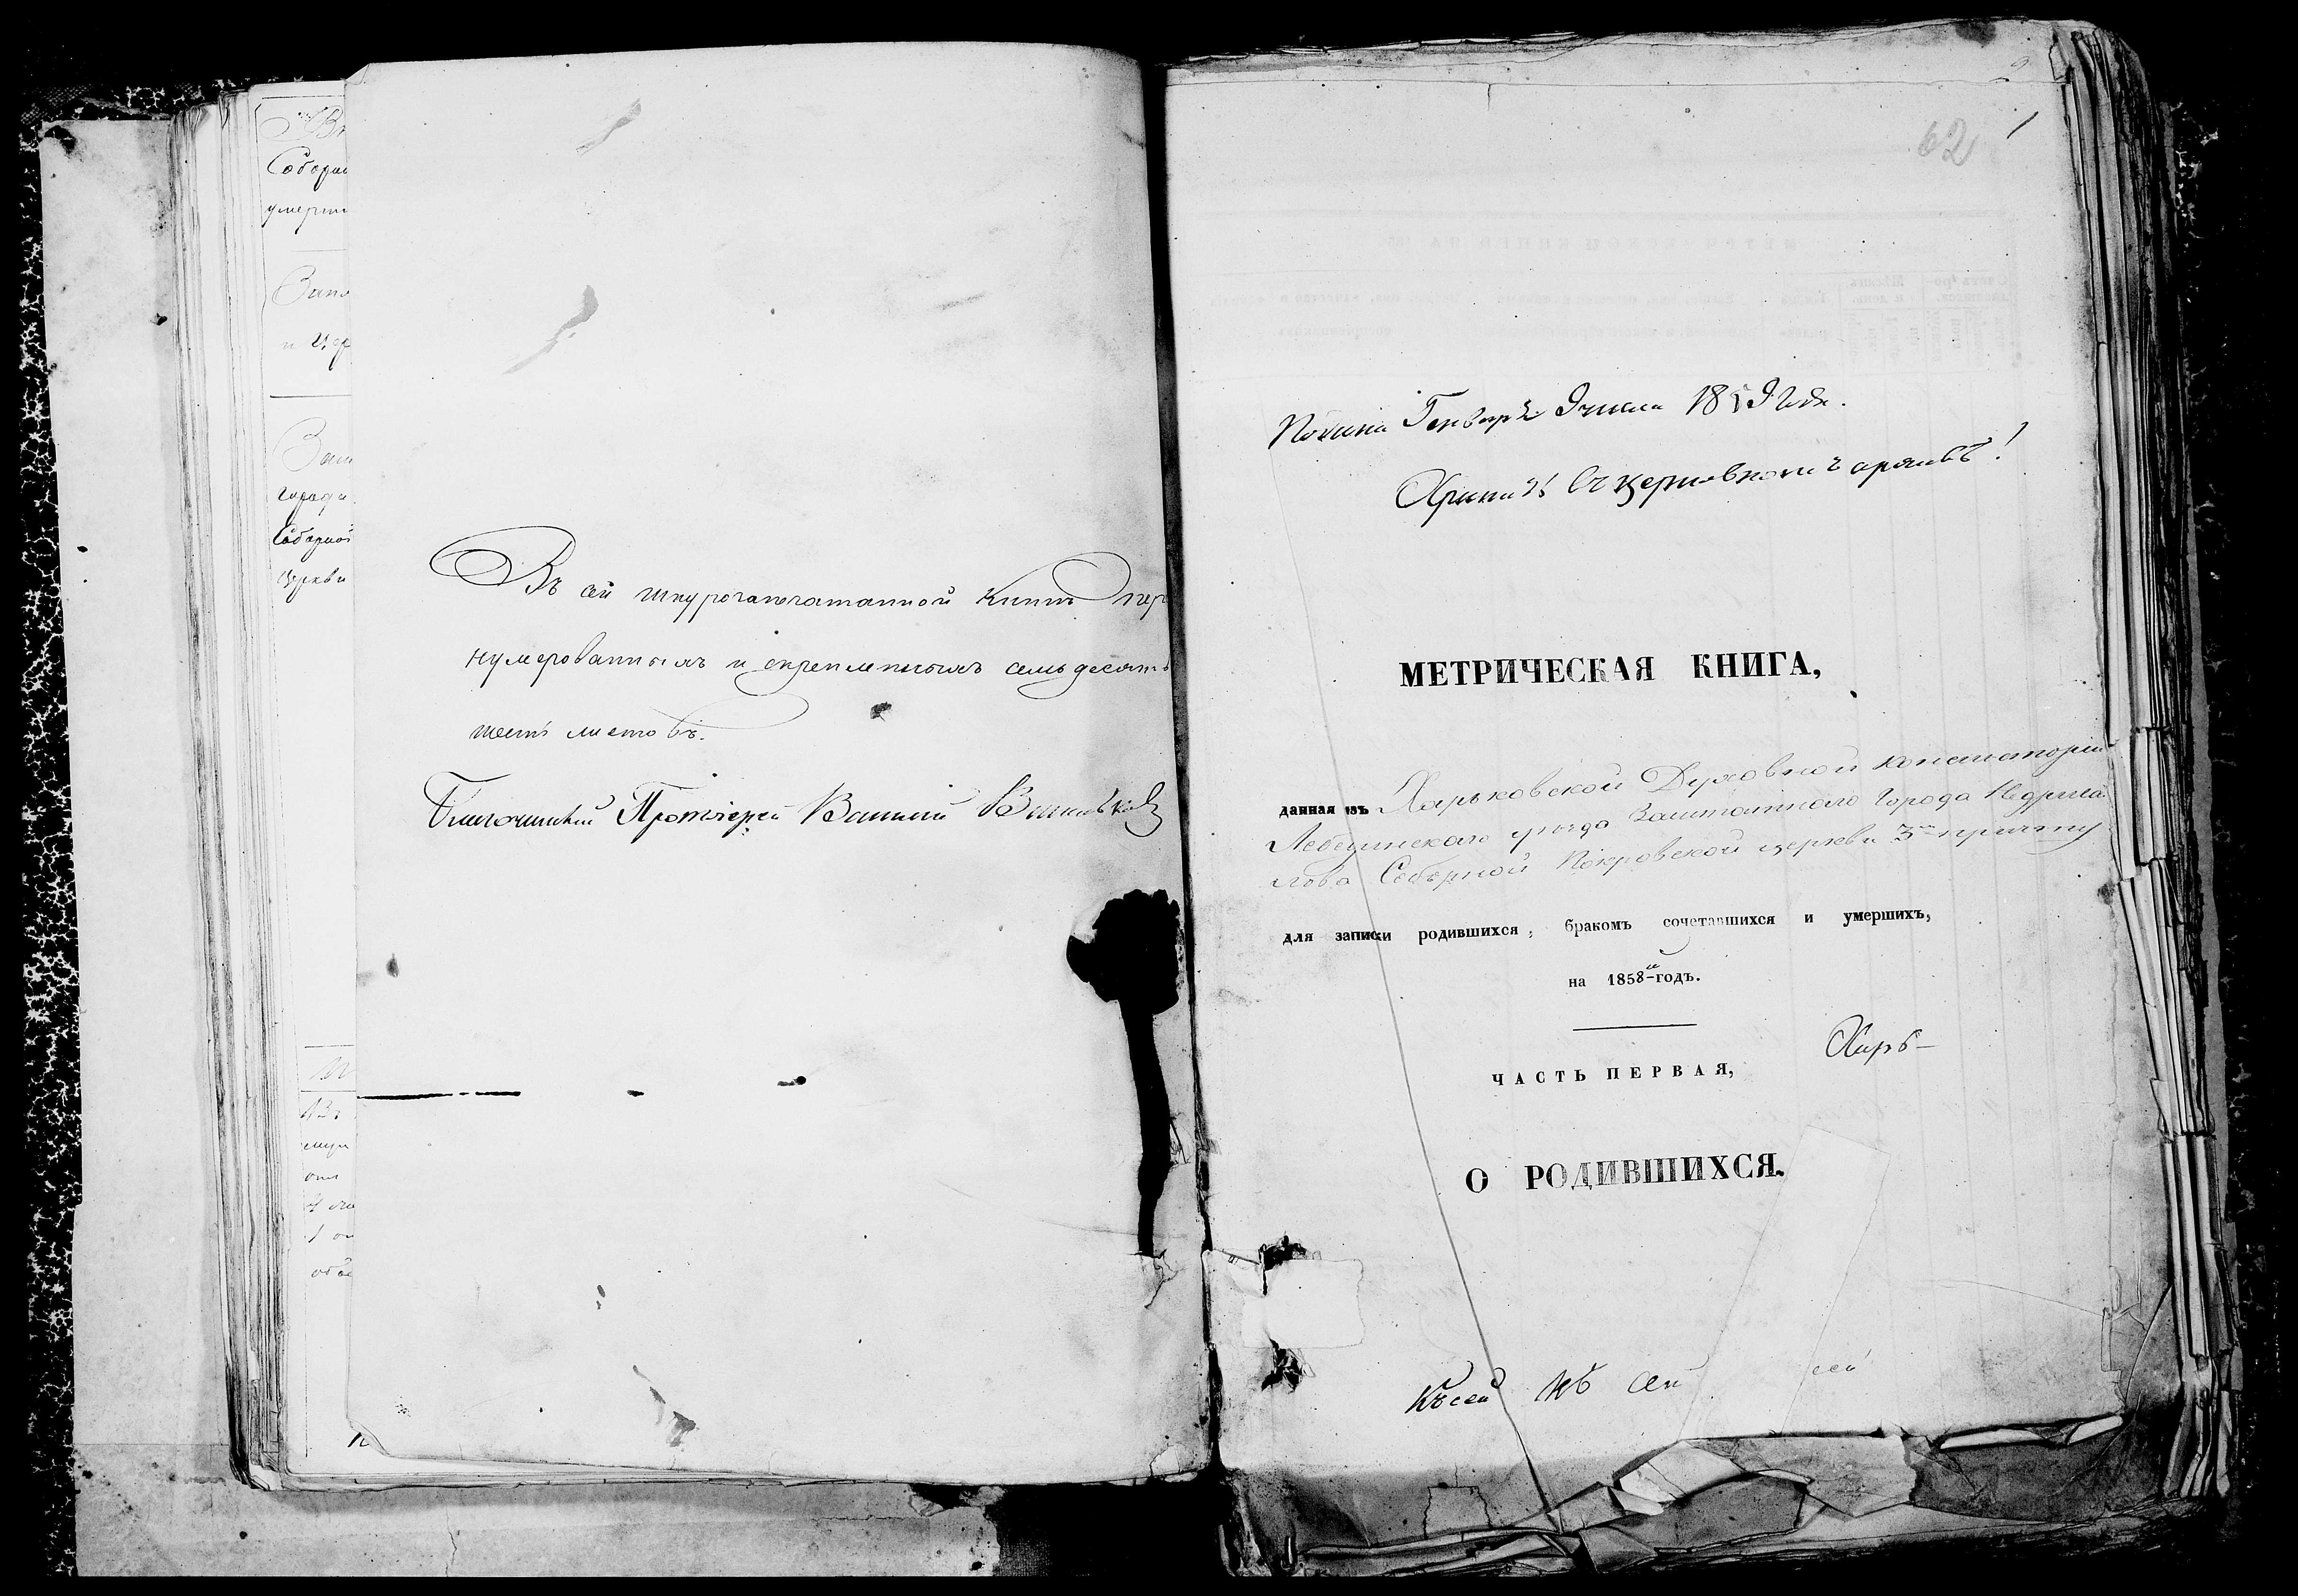 Соборн
умерш
Запи
и цер
города
Соборной
церкви
Въ сей шнурозапечатанной книгѣ пер
нумерованныхъ и скрепленныхъ семьдесятъ
шесть листовъ.
Благочинный Протоіерей Василій
62
Генваря 9 числа 1859 года.
Хранить въ церковномъ архивѣ!
МЕТРИЧЕСКАЯ КНИГА,
данная изъ Харьковской Духовной Консисторіи
Лебединскаго уѣзда Заштатнаго Города Недрига
лова Соборной Покровской церкви 3му причту
для записи родившихся, бракомъ сочетавшихся и умершихъ,
на 1858й годъ.
Харь-
ЧАСТЬ ПЕРВАЯ,
О РОДИВШИХСЯ.
Къ сей къ сей сей